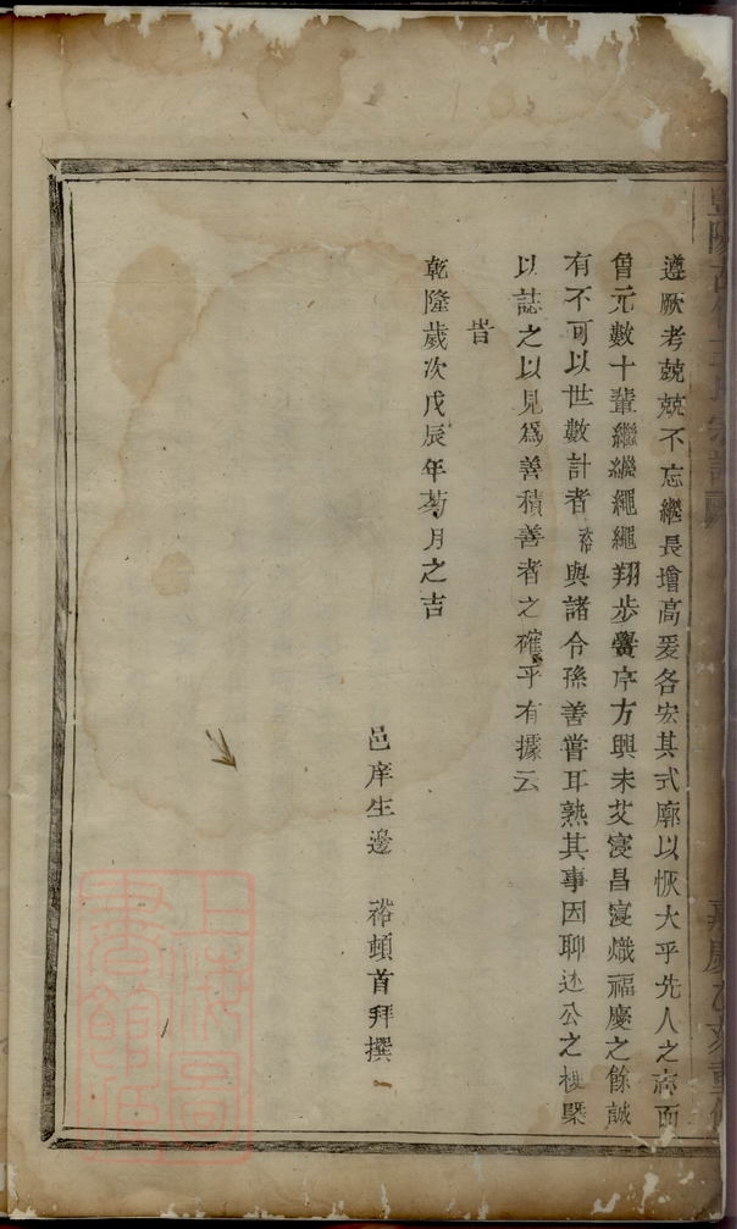 遵厥考兢兢不忘繼長增高爰各宏其式廓以恢大乎先人之 而
曾元數十輩繼繼繩繩翔步黌序方興未艾寖昌寖熾福慶之餘誠
有不可以世數計者裕與諸令孫善嘗耳熟其事因聊述公之梗槩
以誌之以見為善積善者之確乎有據云
旹
乾隆歲次戊辰年菊月之吉
邑庠生邊 裕頓首拜撰
上海圖書館藏